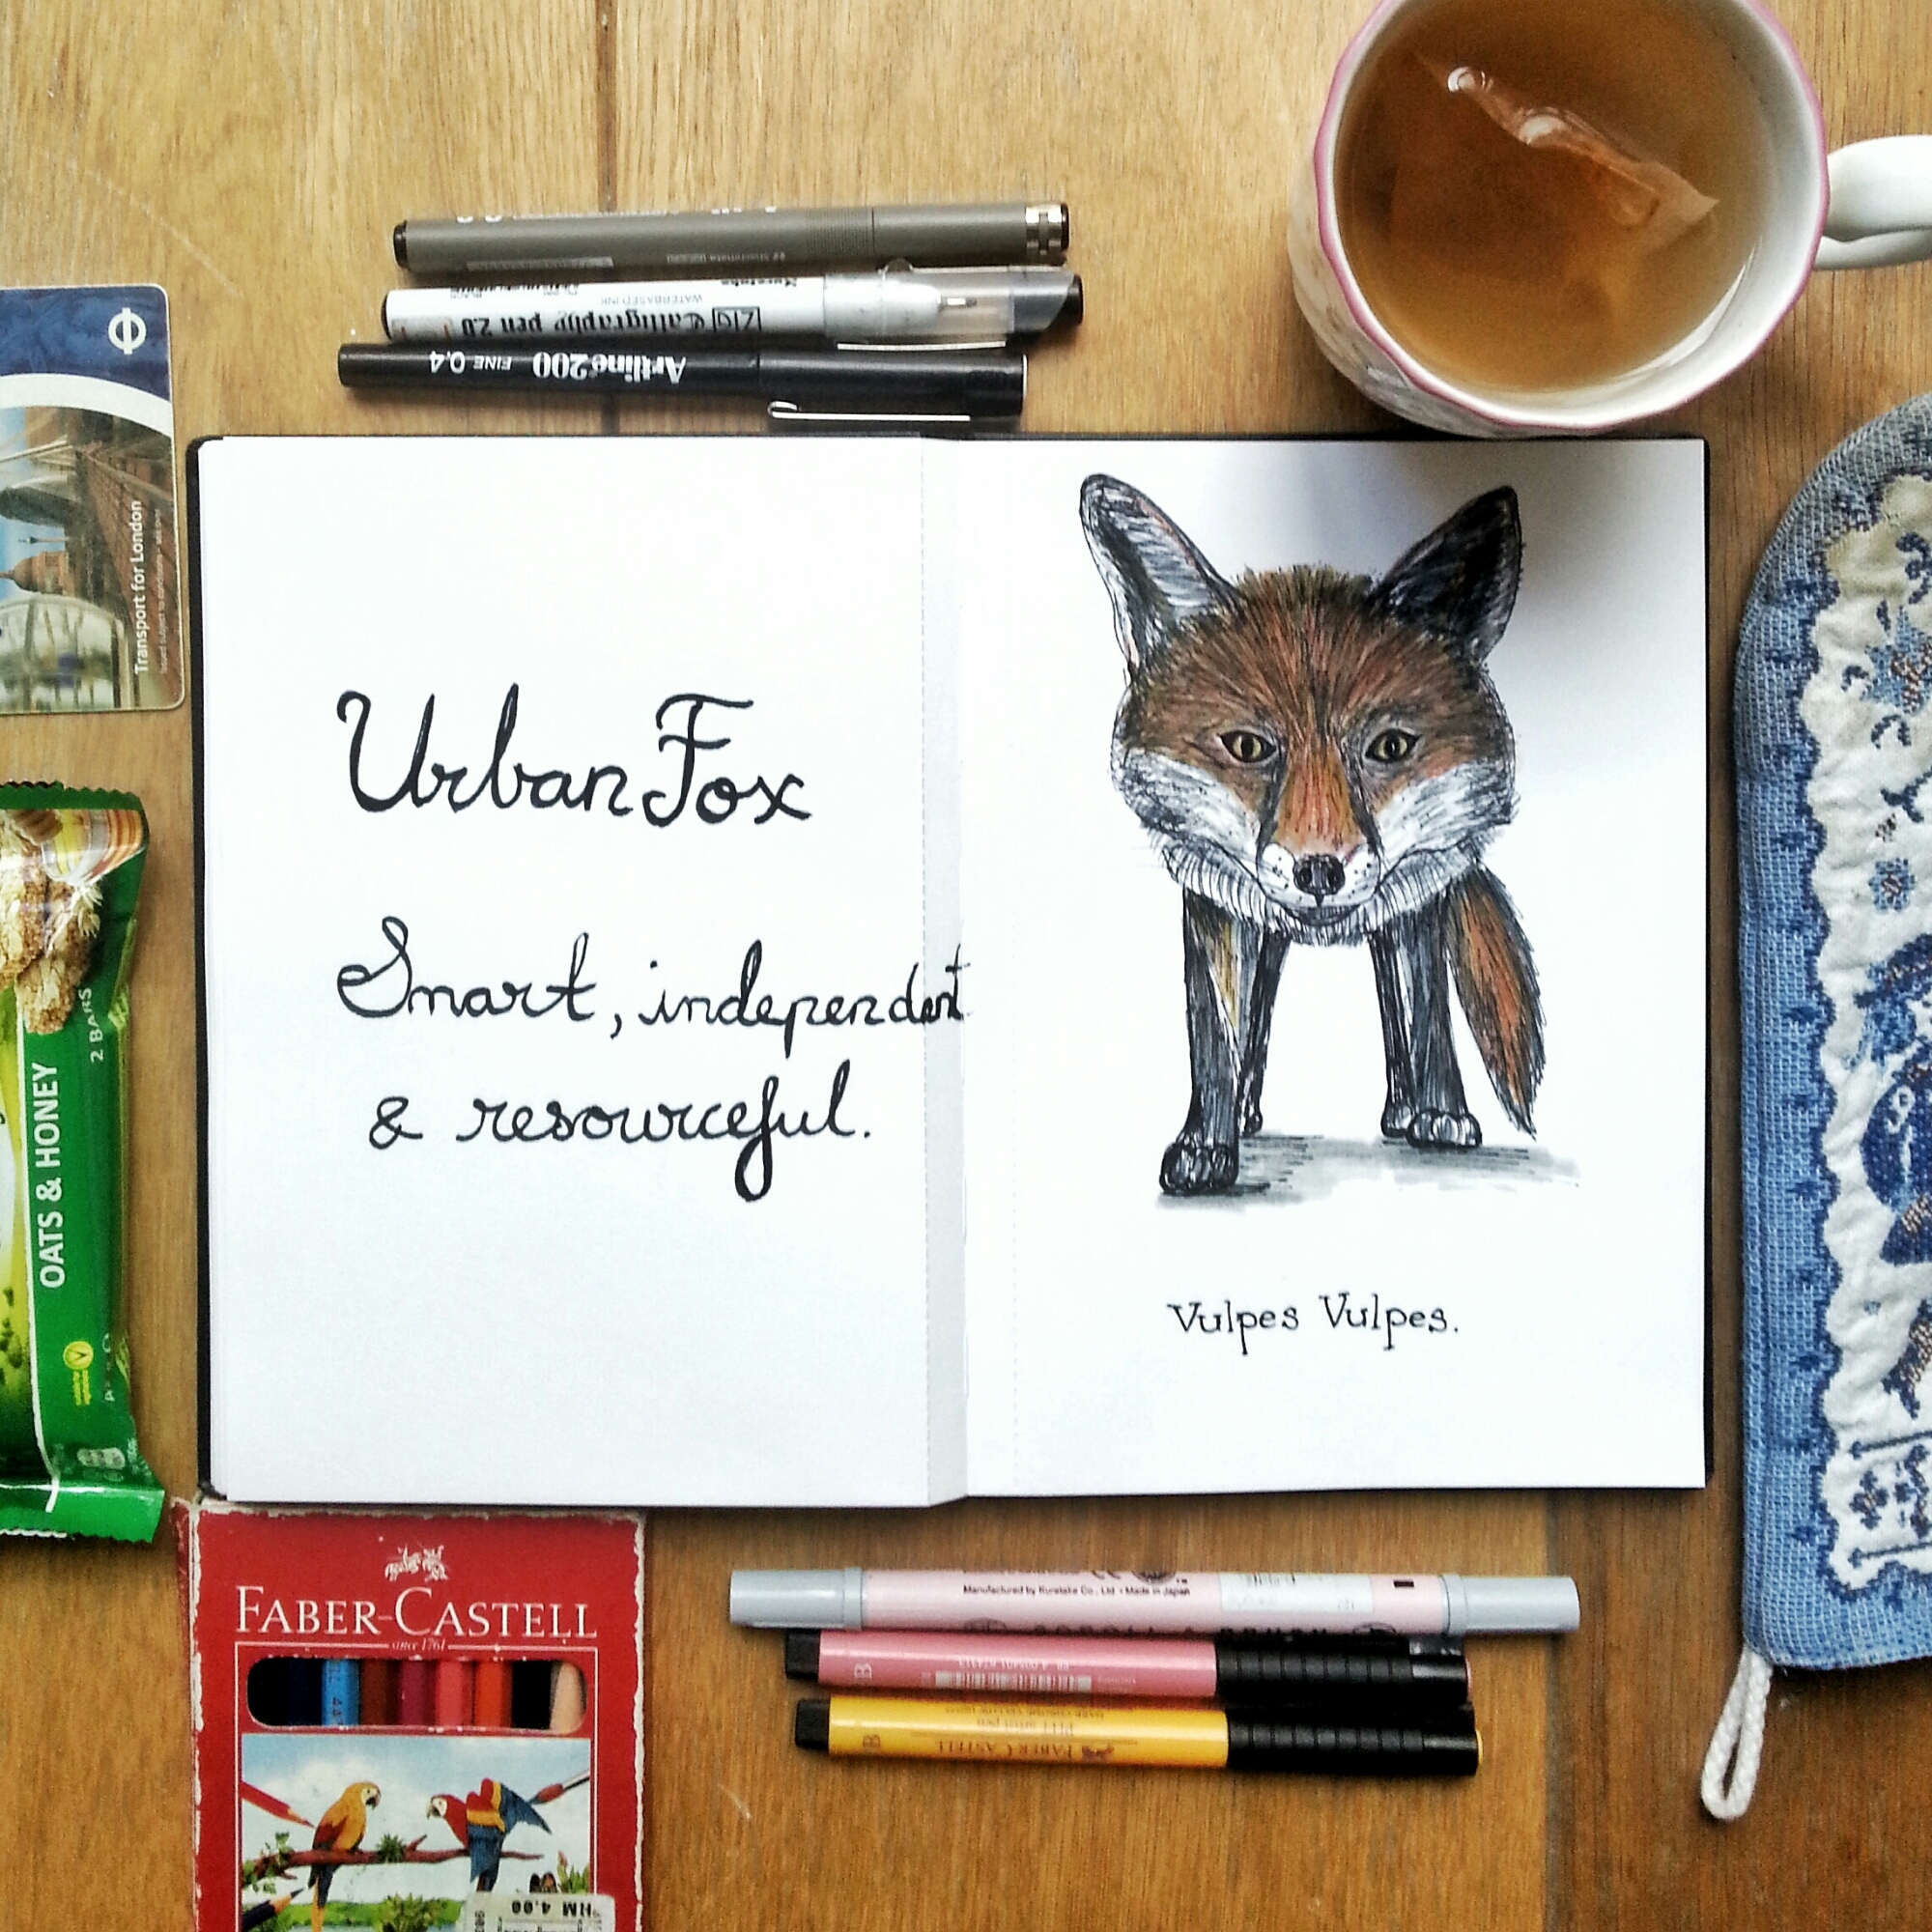 Artline 200 FINE 0,4
ZIG Calligraphy pen 2.0
WATERBASED INK
Kuretake
Transport for London
Urban Fox
Smart, independent
& resourceful.
Vulpes Vulpes.
OATS & HONEY
2 BARS
FABER-CASTELL
since 1761
Manufactured by Kuretake Co., Ltd. • Made in Japan
B
B
FABER-CASTELL
PITT artist pen
4,00